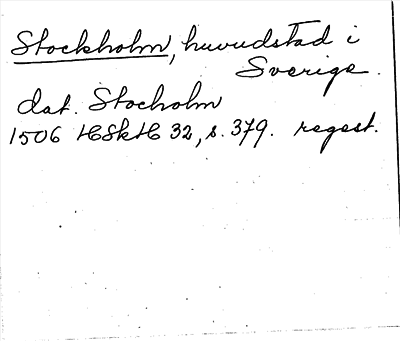 Stockholm, huvudstad i
Sverige.
dat. Stocholm
1506 HSkH 32, s. 379. regest.